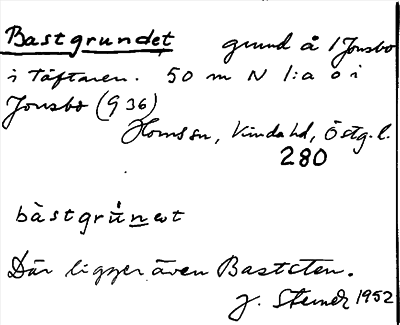 Bastgrundet grund å 1 Jonsbo
i Täftaren. 50 m N l:a ö i
Jonsbo (G 36)
Horns sn, Kinda hd, Östg. l.
280
bàstgrúnət
Där ligger även Baststen.
1952